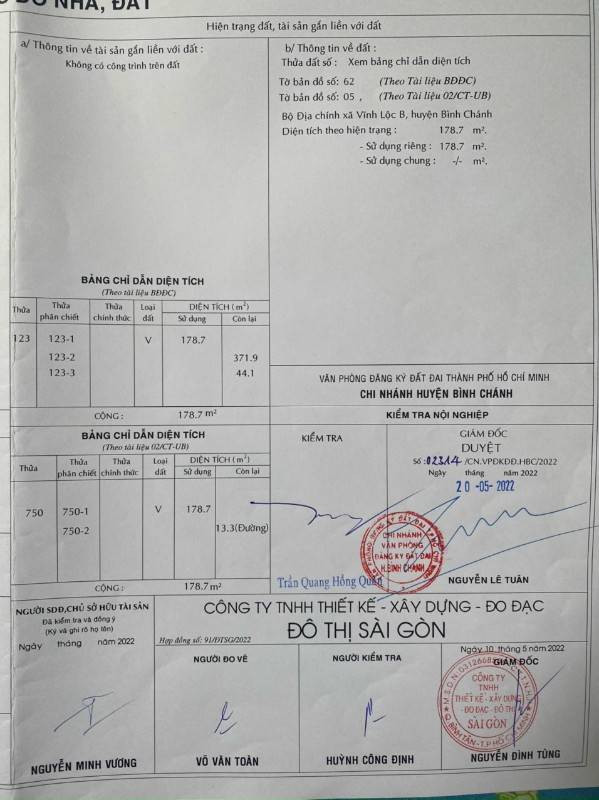 NHÀ, ĐẤT
Hiện trạng đất, tài sản gắn liền với đất
a/ Thông tin về tài sản gắn liền với đất :
Không có công trình trên đất
b/ Thông tin về đất :
Thửa đất số : Xem bảng chỉ dẫn diện tích
Tờ bản đồ số: 62 (Theo Tài liệu BĐĐC)
Tờ bản đồ số: 05 , (Theo Tài liệu 02/CT-UB)
Bộ Địa chính xã Vĩnh Lộc B, huyện Bình Chánh
Diện tích theo hiện trạng : 178.7 m².
- Sử dụng riêng : 178.7 m².
- Sử dụng chung : -/- m².
BẢNG CHỈ DẪN DIỆN TÍCH
(Theo tài liệu BĐĐC)
Thửa Thửa phân chiết Thửa chính thức Loại đất DIỆN TÍCH ( m²) Sử dụng Còn lại
123 123-1 V 178.7
123-2 371.9
123-3 44.1
CỘNG : 178.7 m²
VĂN PHÒNG ĐĂNG KÝ ĐẤT ĐAI THÀNH PHỐ HỒ CHÍ MINH
CHI NHÁNH HUYỆN BÌNH CHÁNH
KIỂM TRA NỘI NGHIỆP
BẢNG CHỈ DẪN DIỆN TÍCH
(Theo tài liệu 02/CT-UB)
Thửa Thửa phân chiết Thửa chính thức Loại đất DIỆN TÍCH ( m²) Sử dụng Còn lại
750 750-1 V 178.7
750-2 13.3(Đường)
CỘNG : 178.7m²
KIỂM TRA
Trần Quang Hồng Quân
GIÁM ĐỐC
DUYỆT
Số :02314 /CN.VPĐKĐĐ.HBC/2022
Ngày tháng năm 2022
20 -05- 2022
CHI NHÁNH
VĂN PHÒNG
ĐĂNG KÝ ĐẤT ĐAI
H.BÌNH CHÁNH
NGUYỄN LÊ TUÂN
NGƯỜI SDĐ,CHỦ SỞ HỮU TÀI SẢN
Đã kiểm tra và đồng ý
(Ký và ghi rõ họ tên)
Ngày tháng năm 2022
NGUYỄN MINH VƯƠNG
CÔNG TY TNHH THIẾT KẾ - XÂY DỰNG - ĐO ĐẠC
ĐÔ THỊ SÀI GÒN
Hợp đồng số: 91/ĐTSG/2022
Ngày 10 tháng 5 năm 2022
NGƯỜI ĐO VẼ
VÕ VĂN TOÀN
NGƯỜI KIỂM TRA
HUỲNH CÔNG ĐỊNH
GIÁM ĐỐC
CÔNG TY
TNHH
THIẾT KẾ - XÂY DỰNG
- ĐO ĐẠC - ĐÔ THỊ
SÀI GÒN
NGUYỄN ĐÌNH TÙNG